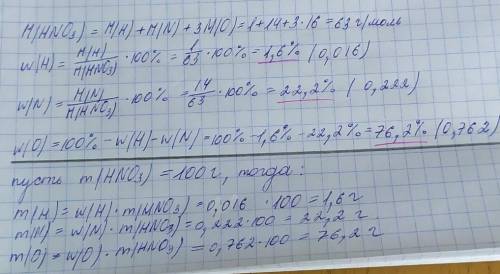 M(HNO₃) = M(H) + M(N) + 3M(O) = 1+14+3·16 = 63 г/моль
w(H) = M(H)/M(HNO₃) · 100% = 1/63 · 100% = 1,6% (0,016)
w(N) = M(N)/M(HNO₃) · 100% = 14/63 · 100% = 22,2% (0,222)
w(O) = 100% - w(H) - w(N) = 100% - 1,6% - 22,2% = 76,2% (0,762)
пусть m(HNO₃) = 100г, тогда:
m(H) = w(H) · m(HNO₃) = 0,016 · 100 = 1,6 г
m(N) = w(N) · m(HNO₃) = 0,222·100 = 22,2 г
m(O) = w(O) · m(HNO₃) = 0,762·100 = 76,2 г